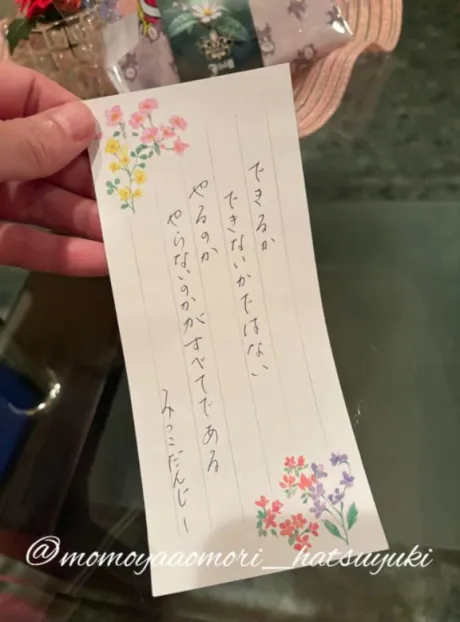 できるか
できないかではない
やるのか
やらないのかがすべてである
みっこだんじー
@momoyaaomori__hatsuyuki